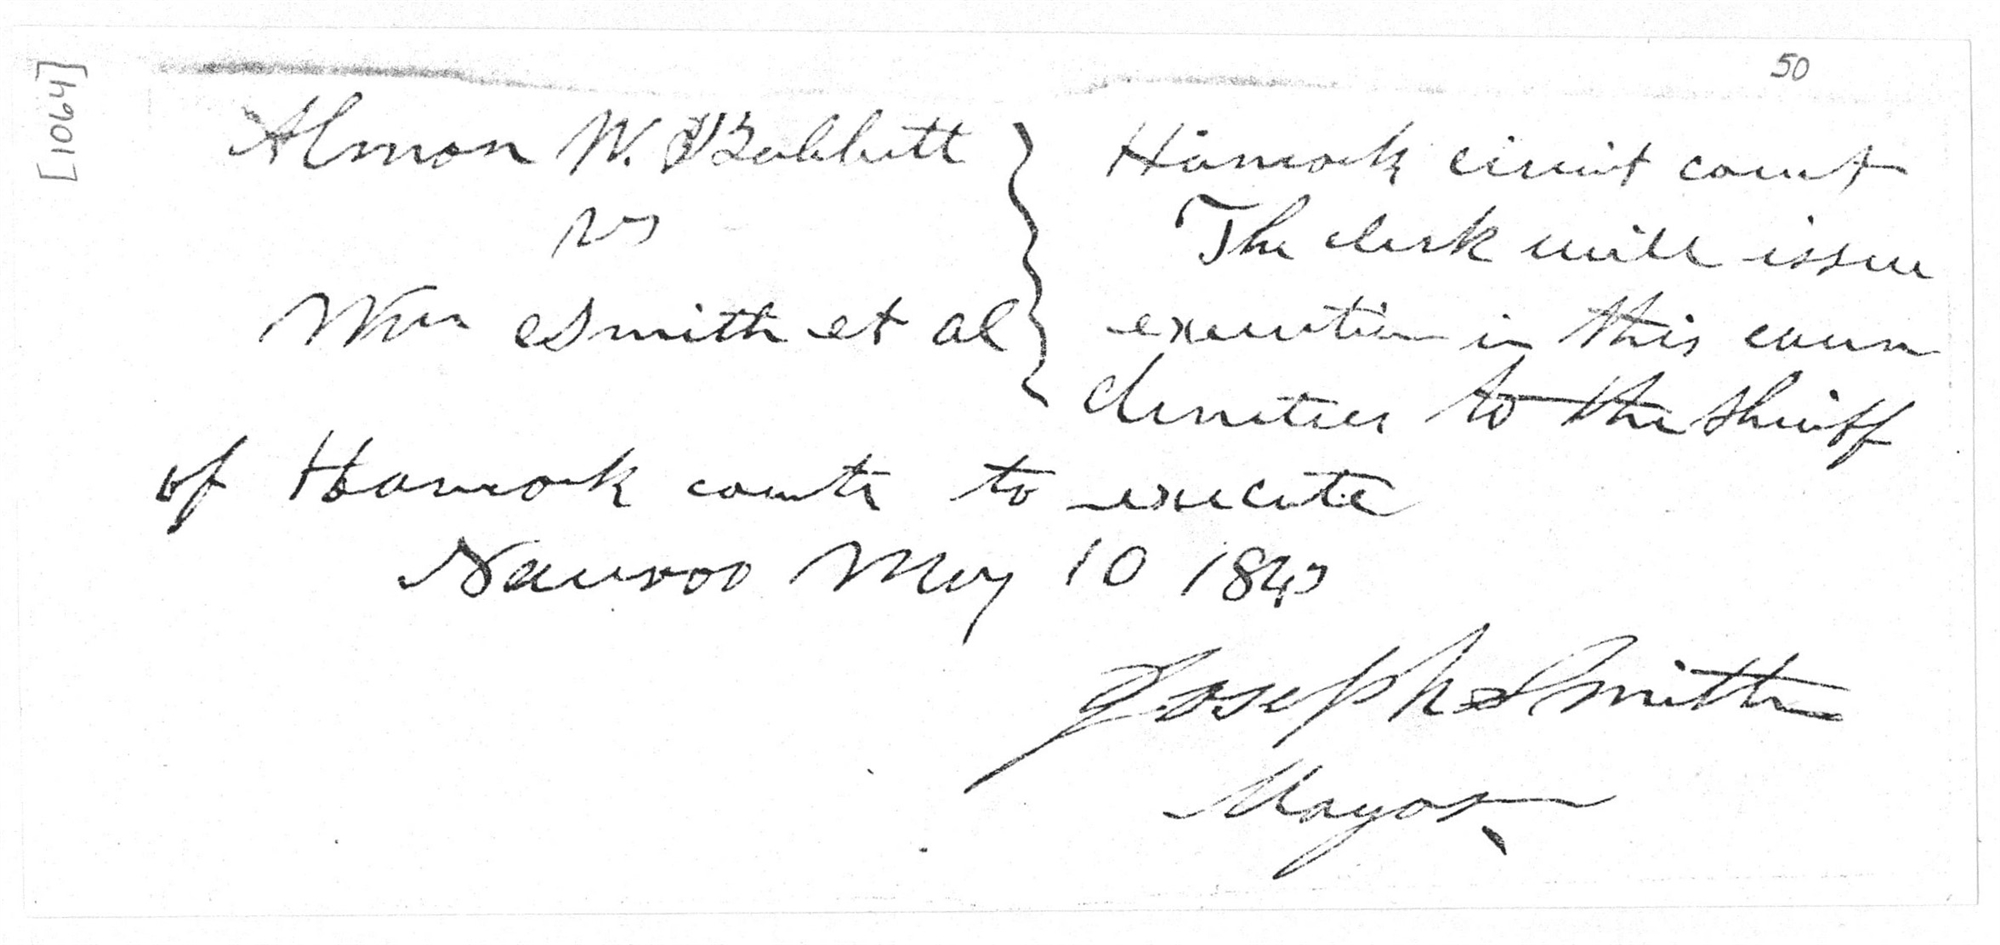 50
[1064]
Almon W. Babbitt } Hancock circuit court
vs } The clerk will issue
Wm Smith et al } execution in this caus
directed to the Sheriff
of Hancock county to execute
Nauvoo May 10 1843
Joseph Smith
Mayor